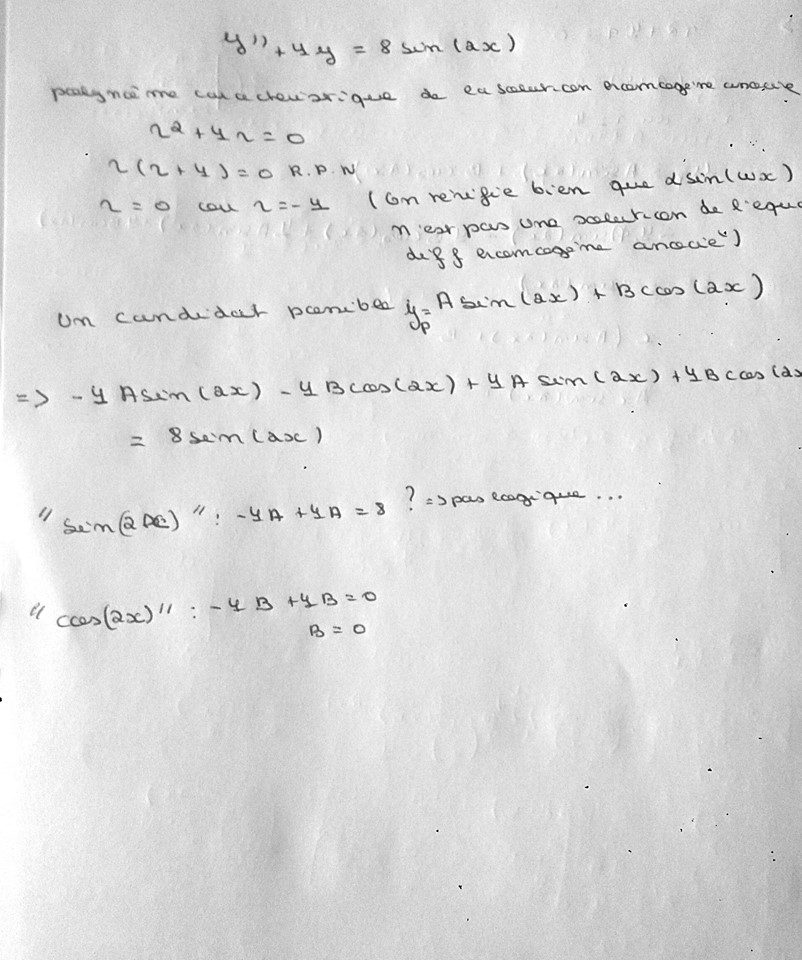 y'' + 4y = 8 sin(2x)
polynôme caractéristique de la solution homogène associée
r² + 4r = 0
r(r + 4) = 0 R.P.N
r = 0 ou r = -4 (on vérifie bien que α sin(ωx)
n'est pas une solution de l'équa
diff homogène associé")
Un candidat possible yp = A sin(2x) + B cos(2x)
=> -4 A sin(2x) - 4 B cos(2x) + 4 A sin(2x) + 4 B cos(2x
= 8 sin(2x)
"sin(2x)" : -4A + 4A = 8 ? => pas logique ...
"cos(2x)" : -4B + 4B = 0
B = 0